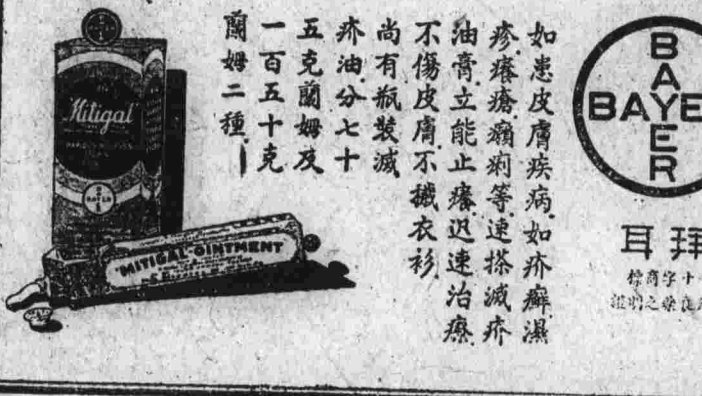 BAYER
BAYE
耳拜
標商字十
如患皮膚疾病.如疥癬濕
疹.癢瘡.癩痢等.速搽滅疥
油膏.立能止癢.迅速治療.
不傷皮膚.不穢衣衫.
尚有瓶裝滅
疥油.分七十
五克蘭姆及
一百五十克
蘭姆二種.
Mitigal
MITIGAL OINTMENT